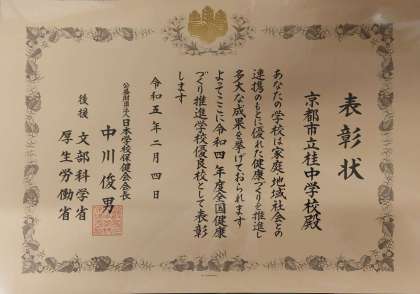 表彰状
京都市立桂中学校殿
あなたの学校は家庭、地域社会との
連携のもとに優れた健康づくりを推進し
多大な成果を挙げておられます
よってここに令和四年度全国健康
づくり推進学校優良校として表彰
します
令和五年二月四日
公益財団法人日本学校保健会会長
中川俊男
後援 文部科学省
厚生労働省